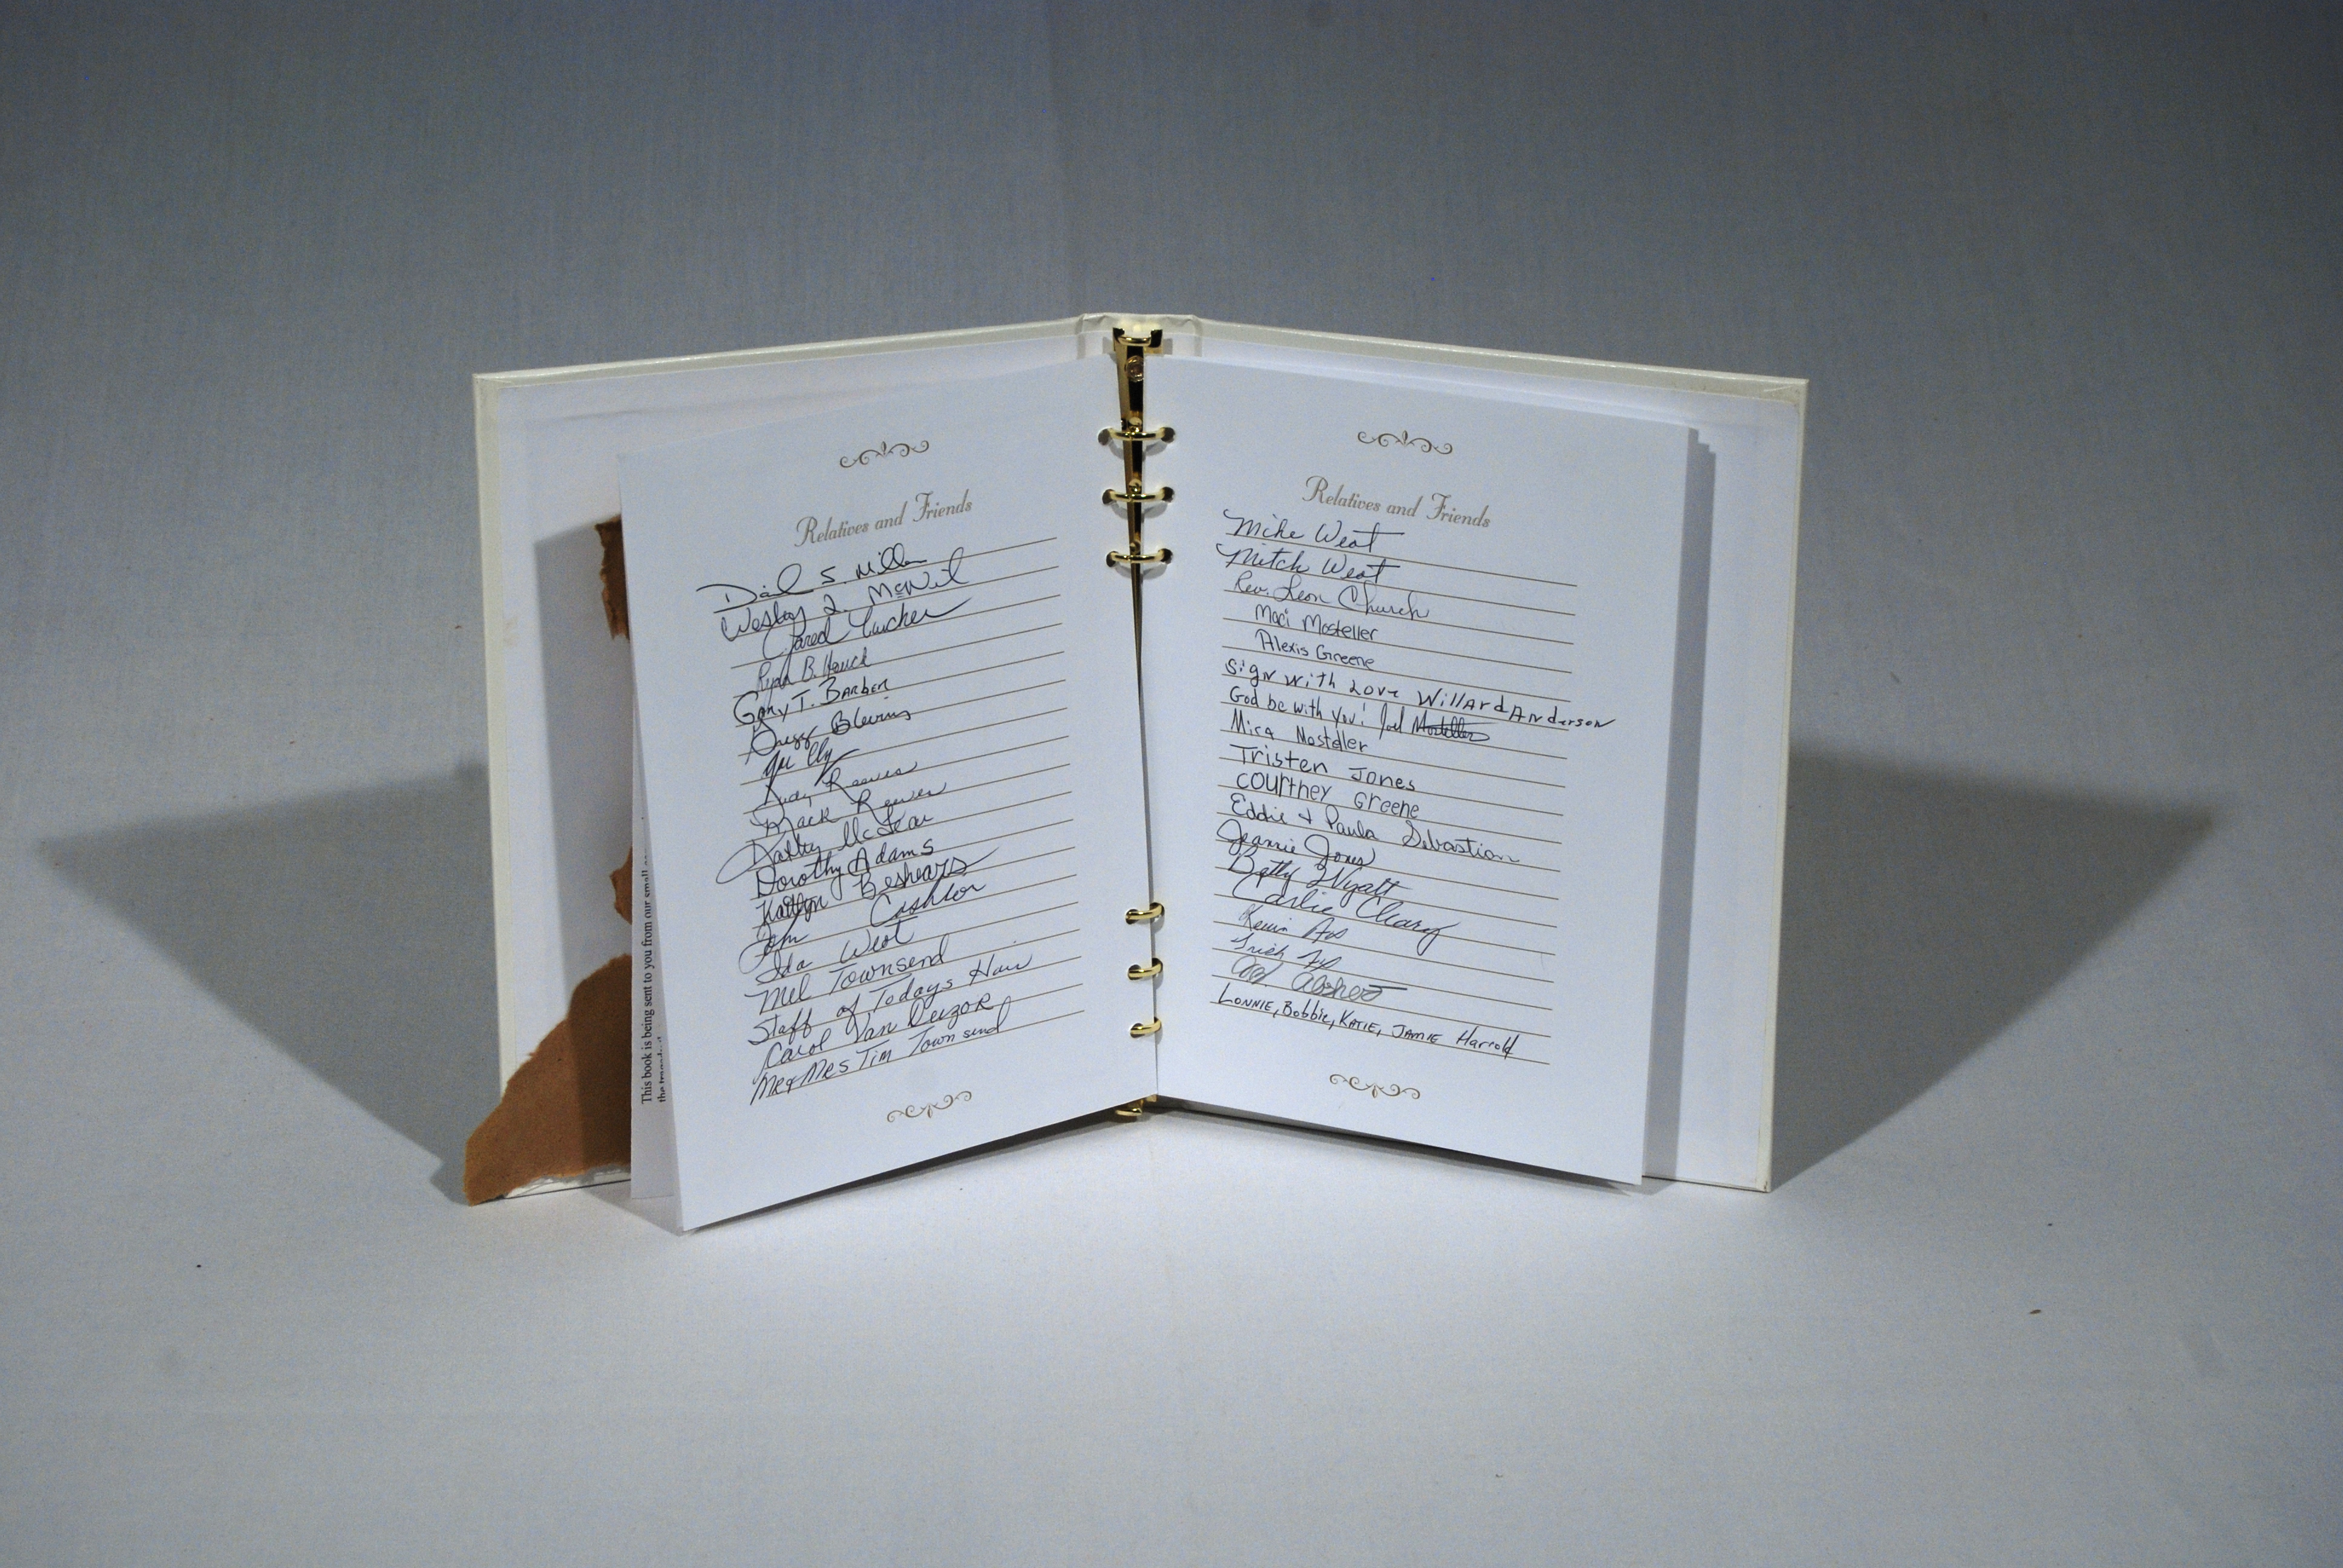 This book is being sent to you from our small
Relatives and Friends
S. Miller
Wesley McNeil
Jared
Ryan B. Houck
Gary T. Barber
Gregg Blevins
Reeves
Mack Reeves
McLean
Dorothy Adams
Kaitlyn Beshears
Tom
Ida West
Mel Townsend
Staff of Todays Hair
Carol Van Deuzor
Mr & Mrs Tim Townsend
Relatives and Friends
Mike West
Mitch West
Rev. Leon Church
Maci Mosteller
Alexis Greene
Sign with Love Willard Anderson
God be with you! Joel Mosteller
Mira Mosteller
Tristen Jones
Courtney Greene
Eddie & Paula Sebastian
Jeannie Jones
Betty Wyatt
Carlie Cleary
Kevin
Trish
Absher
Lonnie, Bobbie, Katie, Jamie Harrold